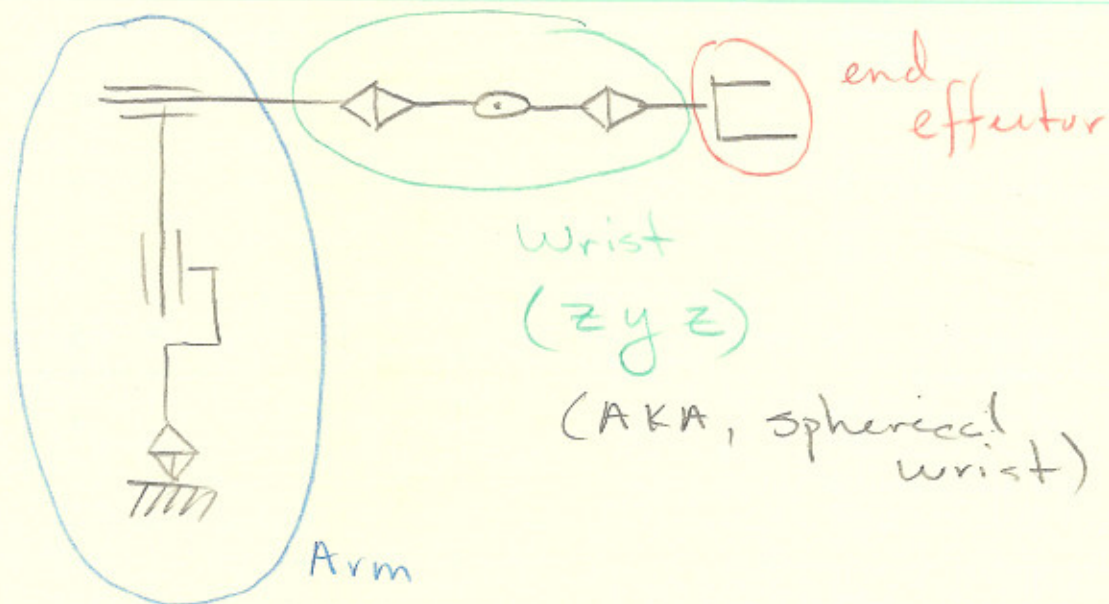 end
effector
Wrist
(zyz)
(AKA, spherical
wrist)
Arm